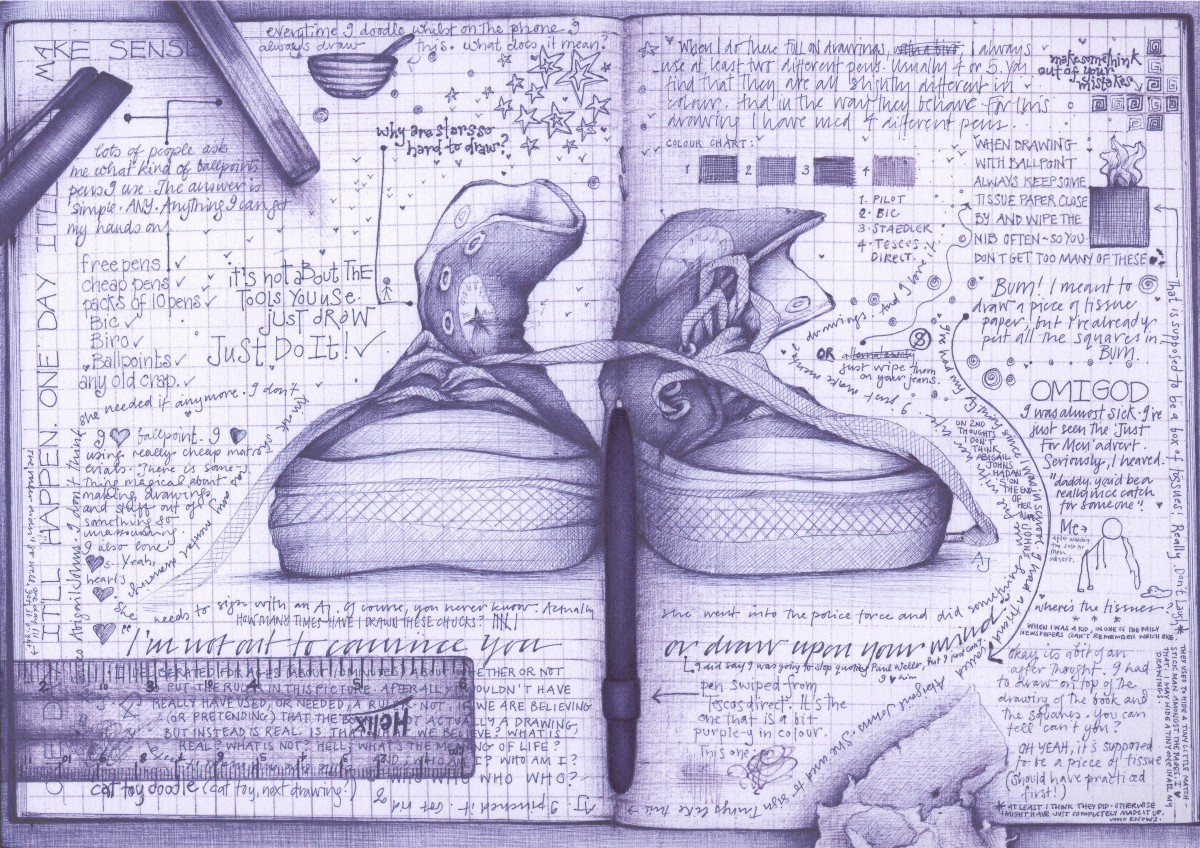 MAKE SENSE
everytime I doodle whilst on the phone I
always draw this. what does it mean?
why are stars so
hard to draw?
lots of people ask
me what kind of ballpoint
pens I use. The answer is
simple. ANY. Anything I can get
my hands on!
free pens ✓
cheap pens ✓
packs of 10 pens ✓
Bic ✓
Biro ✓
Ballpoints ✓
any old crap. ✓
it's not aBout THE
TOOLS YOU USE.
JUST dRAW
JUST Do IT! ✓
ONE DAY IT'LL HAPPEN. ONE DAY IT'LL
she needed it anymore. I don't think she
I ♥ ballpoint. I ♥
using really cheap mat-
erials. There is some-
thing magical about
making drawings
and stuff out of
something so
I also love
♥s. Yeah,
hearts
Abigail Johns. I don't think
She needs to sign with an AJ. Of course, you never know. Actually
HOW MANY TIMES HAVE I DRAWN THESE CHUCKS?
I'm not out to convince you
DELIBERATED FOR AGES (ABOUT 10 MINUTES) ABOUT WHETHER OR NOT
TO PUT THE RULER IN THIS PICTURE. AFTERALL I WOULDN'T HAVE
REALLY HAVE USED, OR NEEDED, A RULER. NOT, IF WE ARE BELIEVING
(OR PRETENDING) THAT THE BOOK IS NOT ACTUALLY A DRAWING
BUT INSTEAD IS REAL. IS THAT WE BELIEVE? WHAT IS
REAL? WHAT IS NOT? HELL, WHAT'S THE MEANING OF LIFE?
AND I WHO AM I? WHO AM I?
WHO WHO WHO WHO?
Helix
cat toy doodle (cat toy, next drawing?)
I pinched it. Got rid of
When I do these full on drawings, I always
use at least two different pens. Usually 4 or 5. You
find that they are all slightly different in
colour. And in the way they behave. For this
drawing I have used 4 different pens.
make something
out of your
mistakes
COLOUR CHART:
1 2 3 4
1. PILOT
2. BIC
3. STAEDLER
4. TESCOS
DIRECT.
WHEN DRAWING
WITH BALLPOINT
ALWAYS KEEP SOME
TISSUE PAPER CLOSE
BY AND WIPE THE
NIB OFTEN ~ SO YOU
DON'T GET TOO MANY OF THESE
That is supposed to be a box of tissues! Really. Don't laugh
Bum! I meant to
draw a piece of tissue
paper, but I've already
put all the squares in.
BUM.
OR alternatively
just wipe them
on your jeans.
8
ON 2ND
THOUGHTS
I DON'T
THINK
ABIGAIL
JOHNS
HAD AN
'S' ON
THE END
OF HER
NAME
OMIGOD
I was almost sick. I've
just seen the 'Just
For Men' advert.
Seriously, I heaved.
"daddy, you'd be a
really nice catch
for someone"!
Me →
after watching
the Just for Men
advert.
where's the tissues?
* * *
WHEN I WAS A KID, IN ONE OF THE DAILY
NEWSPAPERS (CAN'T REMEMBER WHICH ONE)
THEY USED TO HIDE A TINY LITTLE MATCH-
STICK MAN AMONGST THE PAGES. I ♥
THAT. I MAY HIDE A TINY ONE IN ALL MY
DRAWINGS!
she went into the police force and did something
or draw upon your mind
I did say I was going to stop quoting Paul Weller, but I just can't. I ♥ him
pen swiped from
Tescos direct. It's the
one that is a bit
purple-y in colour.
This one:
Okay, its abit of an
after thought. I had
to draw on top of the
drawing of the book and
the squares. You can
tell can't you?
OH YEAH, it's supposed
to be a piece of tissue
(should have practiced
first!)
* AT LEAST I THINK THEY DID. OTHERWISE
I MIGHT HAVE JUST COMPLETELY MADE IT UP.
WHO KNOWS.
called Abigail Johns. She used to sign things like this →